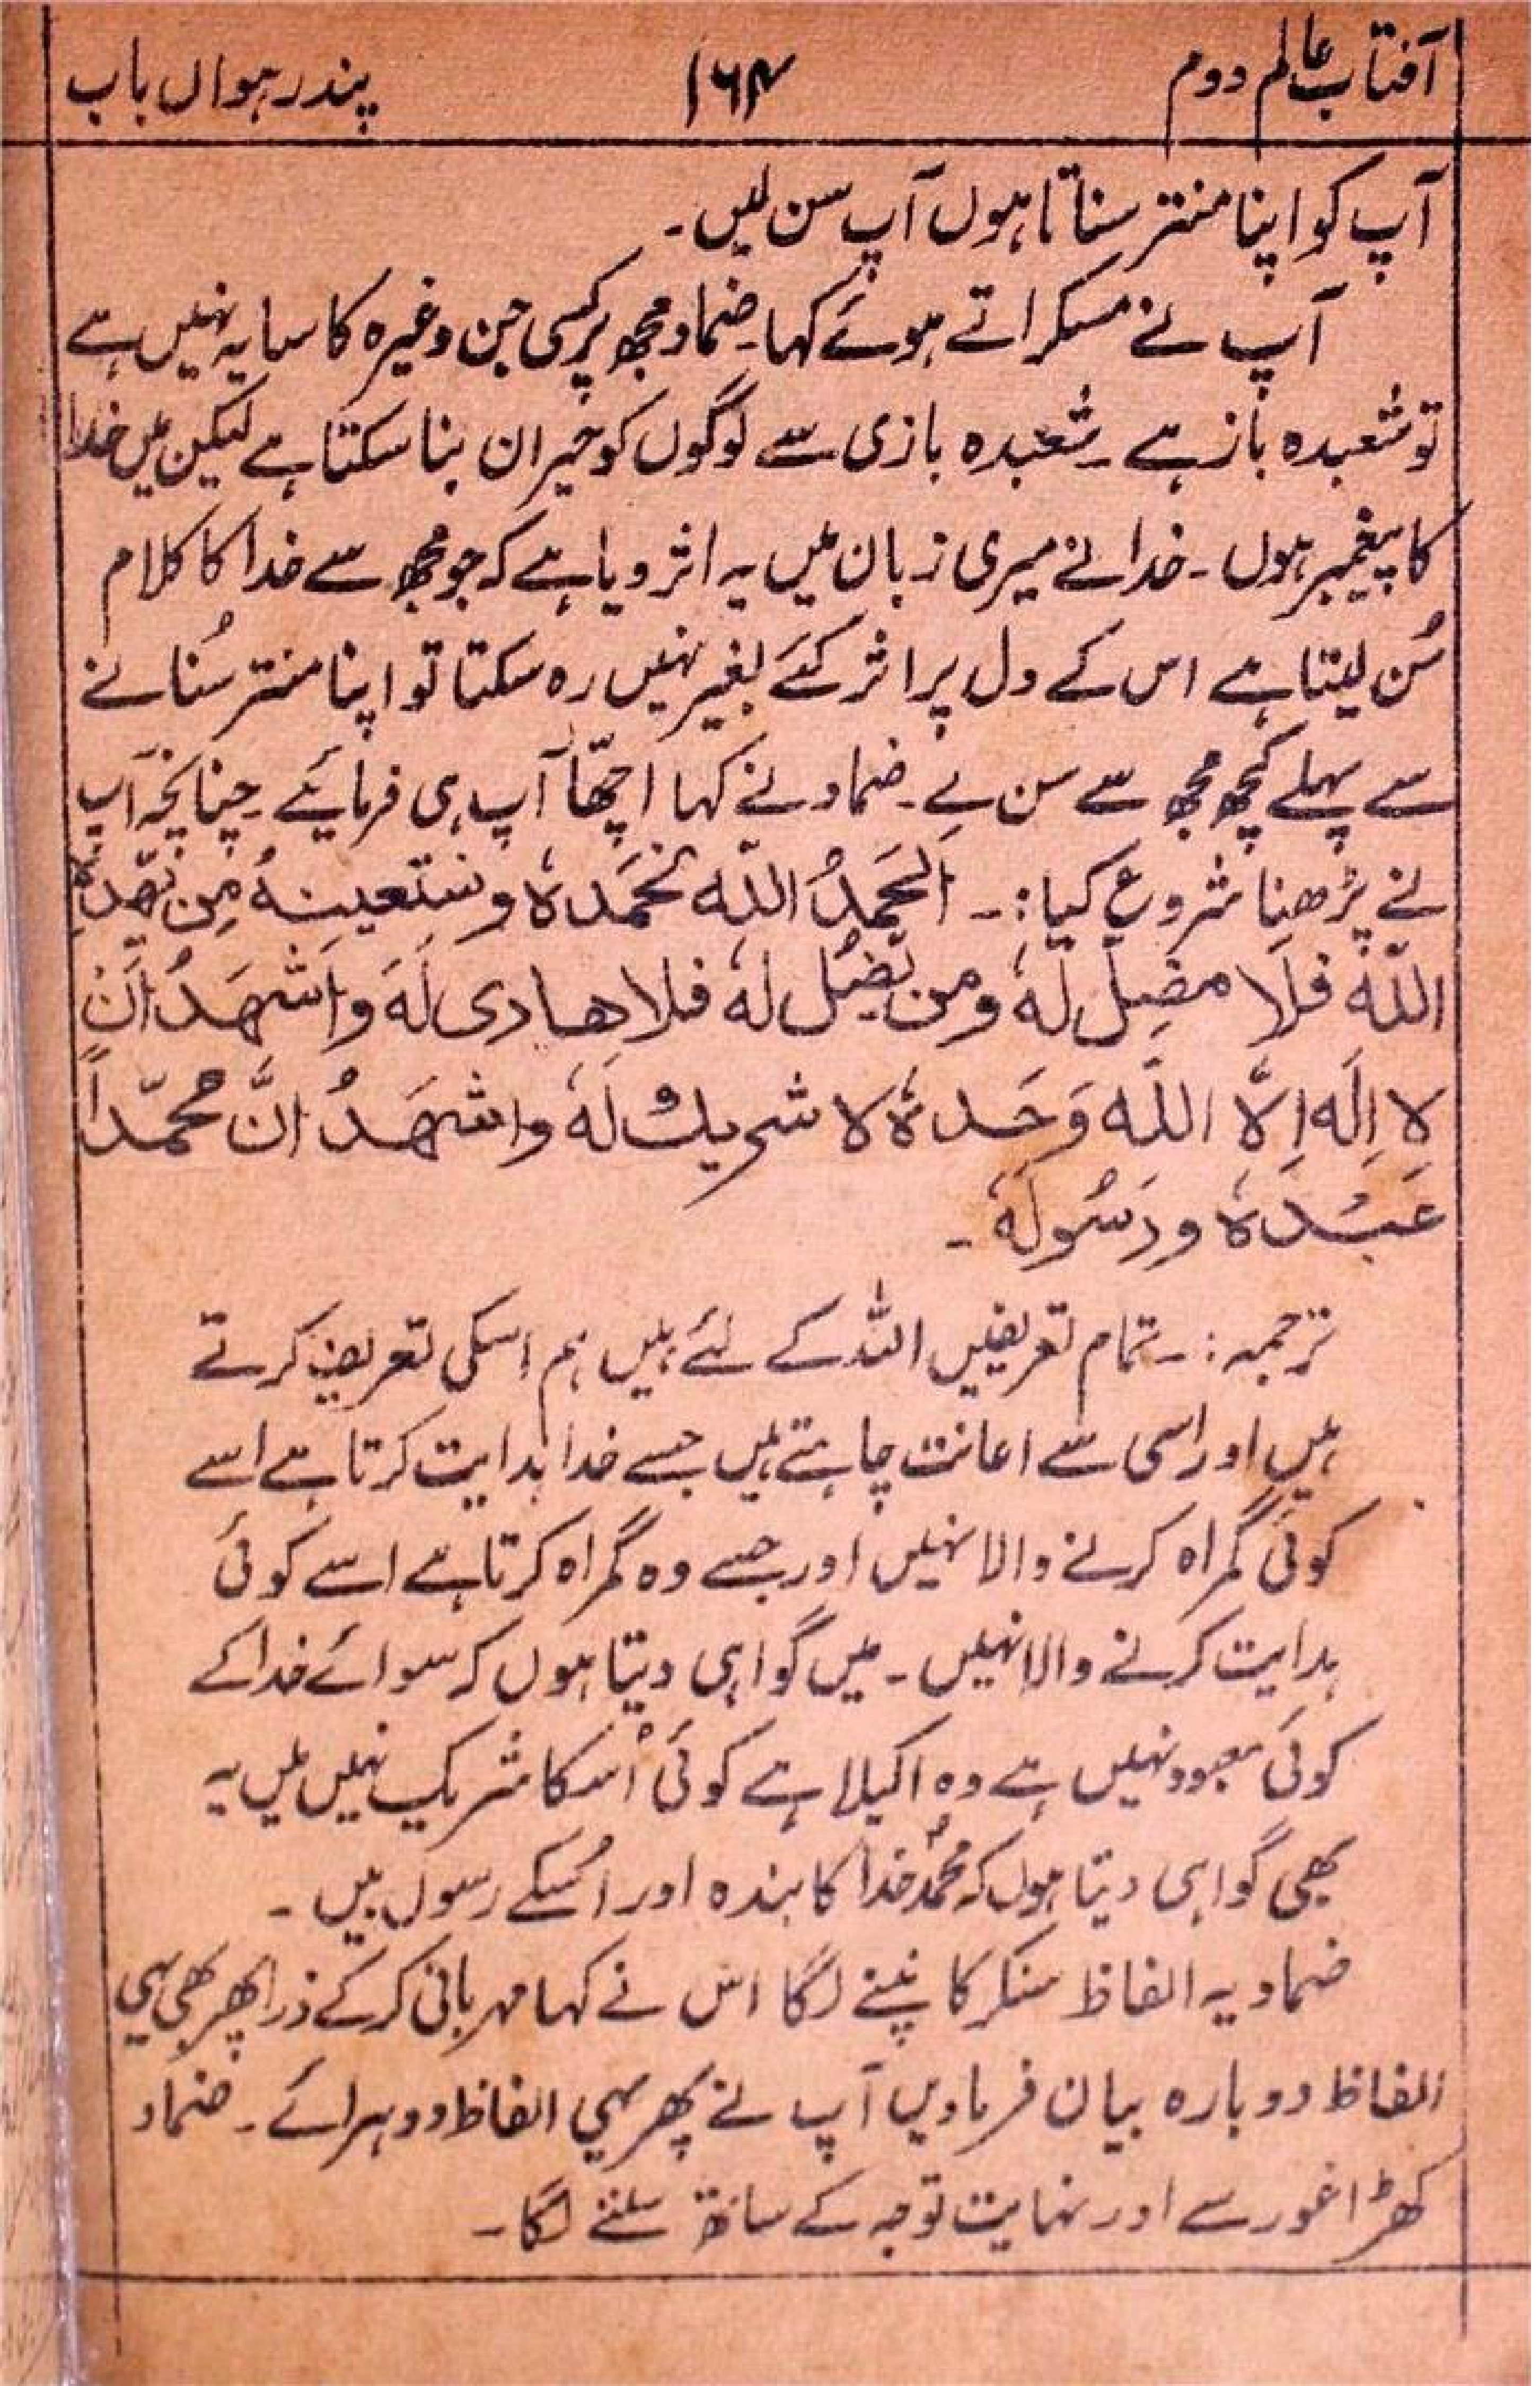 آفتاب عالم دوم ۱۶۴ پندرہواں باب
آپ کو اپنا منتر سناتا ہوں آپ سن لیں۔
آپ نے مسکراتے ہوئے کہا۔ ضماد مجھ پر کسی جن وغیرہ کا سایہ نہیں ہے
تو شعبدہ باز ہے۔ شعبدہ بازی سے لوگوں کو حیران بنا سکتا ہے لیکن میں خدا
کا پیغمبر ہوں۔ خدا نے میری زبان میں یہ اثر دیا ہے کہ جو مجھ سے خدا کا کلام
سُن لیتا ہے اس کے دل پر اثر کئے بغیر نہیں رہ سکتا تو اپنا منتر سُنانے
سے پہلے کچھ مجھ سے سن لے۔ ضماد نے کہا اچھّا آپ ہی فرمائیے۔ چنانچہ آپ
نے پڑھنا شروع کیا:۔ اَلحَمدُ اللّٰہ نحَمَدہٗ و نستَعینہُ مِن یّھدِ
اللّٰہُ فلَا مضِلّ لَہٗ ومن یّضلُل لہٗ فلاھادی لَہَ واَشھَدُ اَن
لا اِلَہ اِلاّ اللّٰہ وَحَدہٗ لا شریک لَہٗ واشھَدُ انَّ محمّداً
عَبُدہٗ ورَسُولَہٗ۔
ترجمہ:۔ تمام تعریفیں اللہ کے لئے ہیں ہم اسکی تعریف کرتے
ہیں اور اسی سے اعانت چاہتے ہیں جسے خدا ہدایت کرتا ہے اسے
کوئی گمراہ کرنے والا نہیں اور جسے وہ گمراہ کرتا ہے اسے کوئی
ہدایت کرنے والا نہیں۔ میں گواہی دیتا ہوں کہ سوائے خدا کے
کوئی معبود نہیں ہے وہ اکیلا ہے کوئی اُسکا شریک نہیں میں یہ
بھی گواہی دیتا ہوں کہ محمدؐ خدا کا بندہ اور اُسکے رسول ہیں۔
ضماد یہ الفاظ سنکر کانپنے لگا اس نے کہا مہربانی کر کے ذرا پھر بھی یہی
الفاظ دوبارہ بیان فرما دیں آپ نے پھر یہی الفاظ دوہرائے۔ ضماد
کھڑا غور سے اور نہایت توجہ کے ساتھ سننے لگا۔